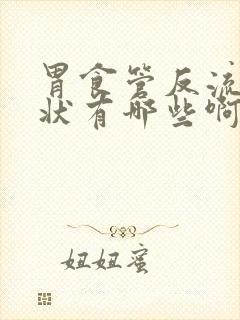 胃食管反流
状有哪些啊
妞妞蜜